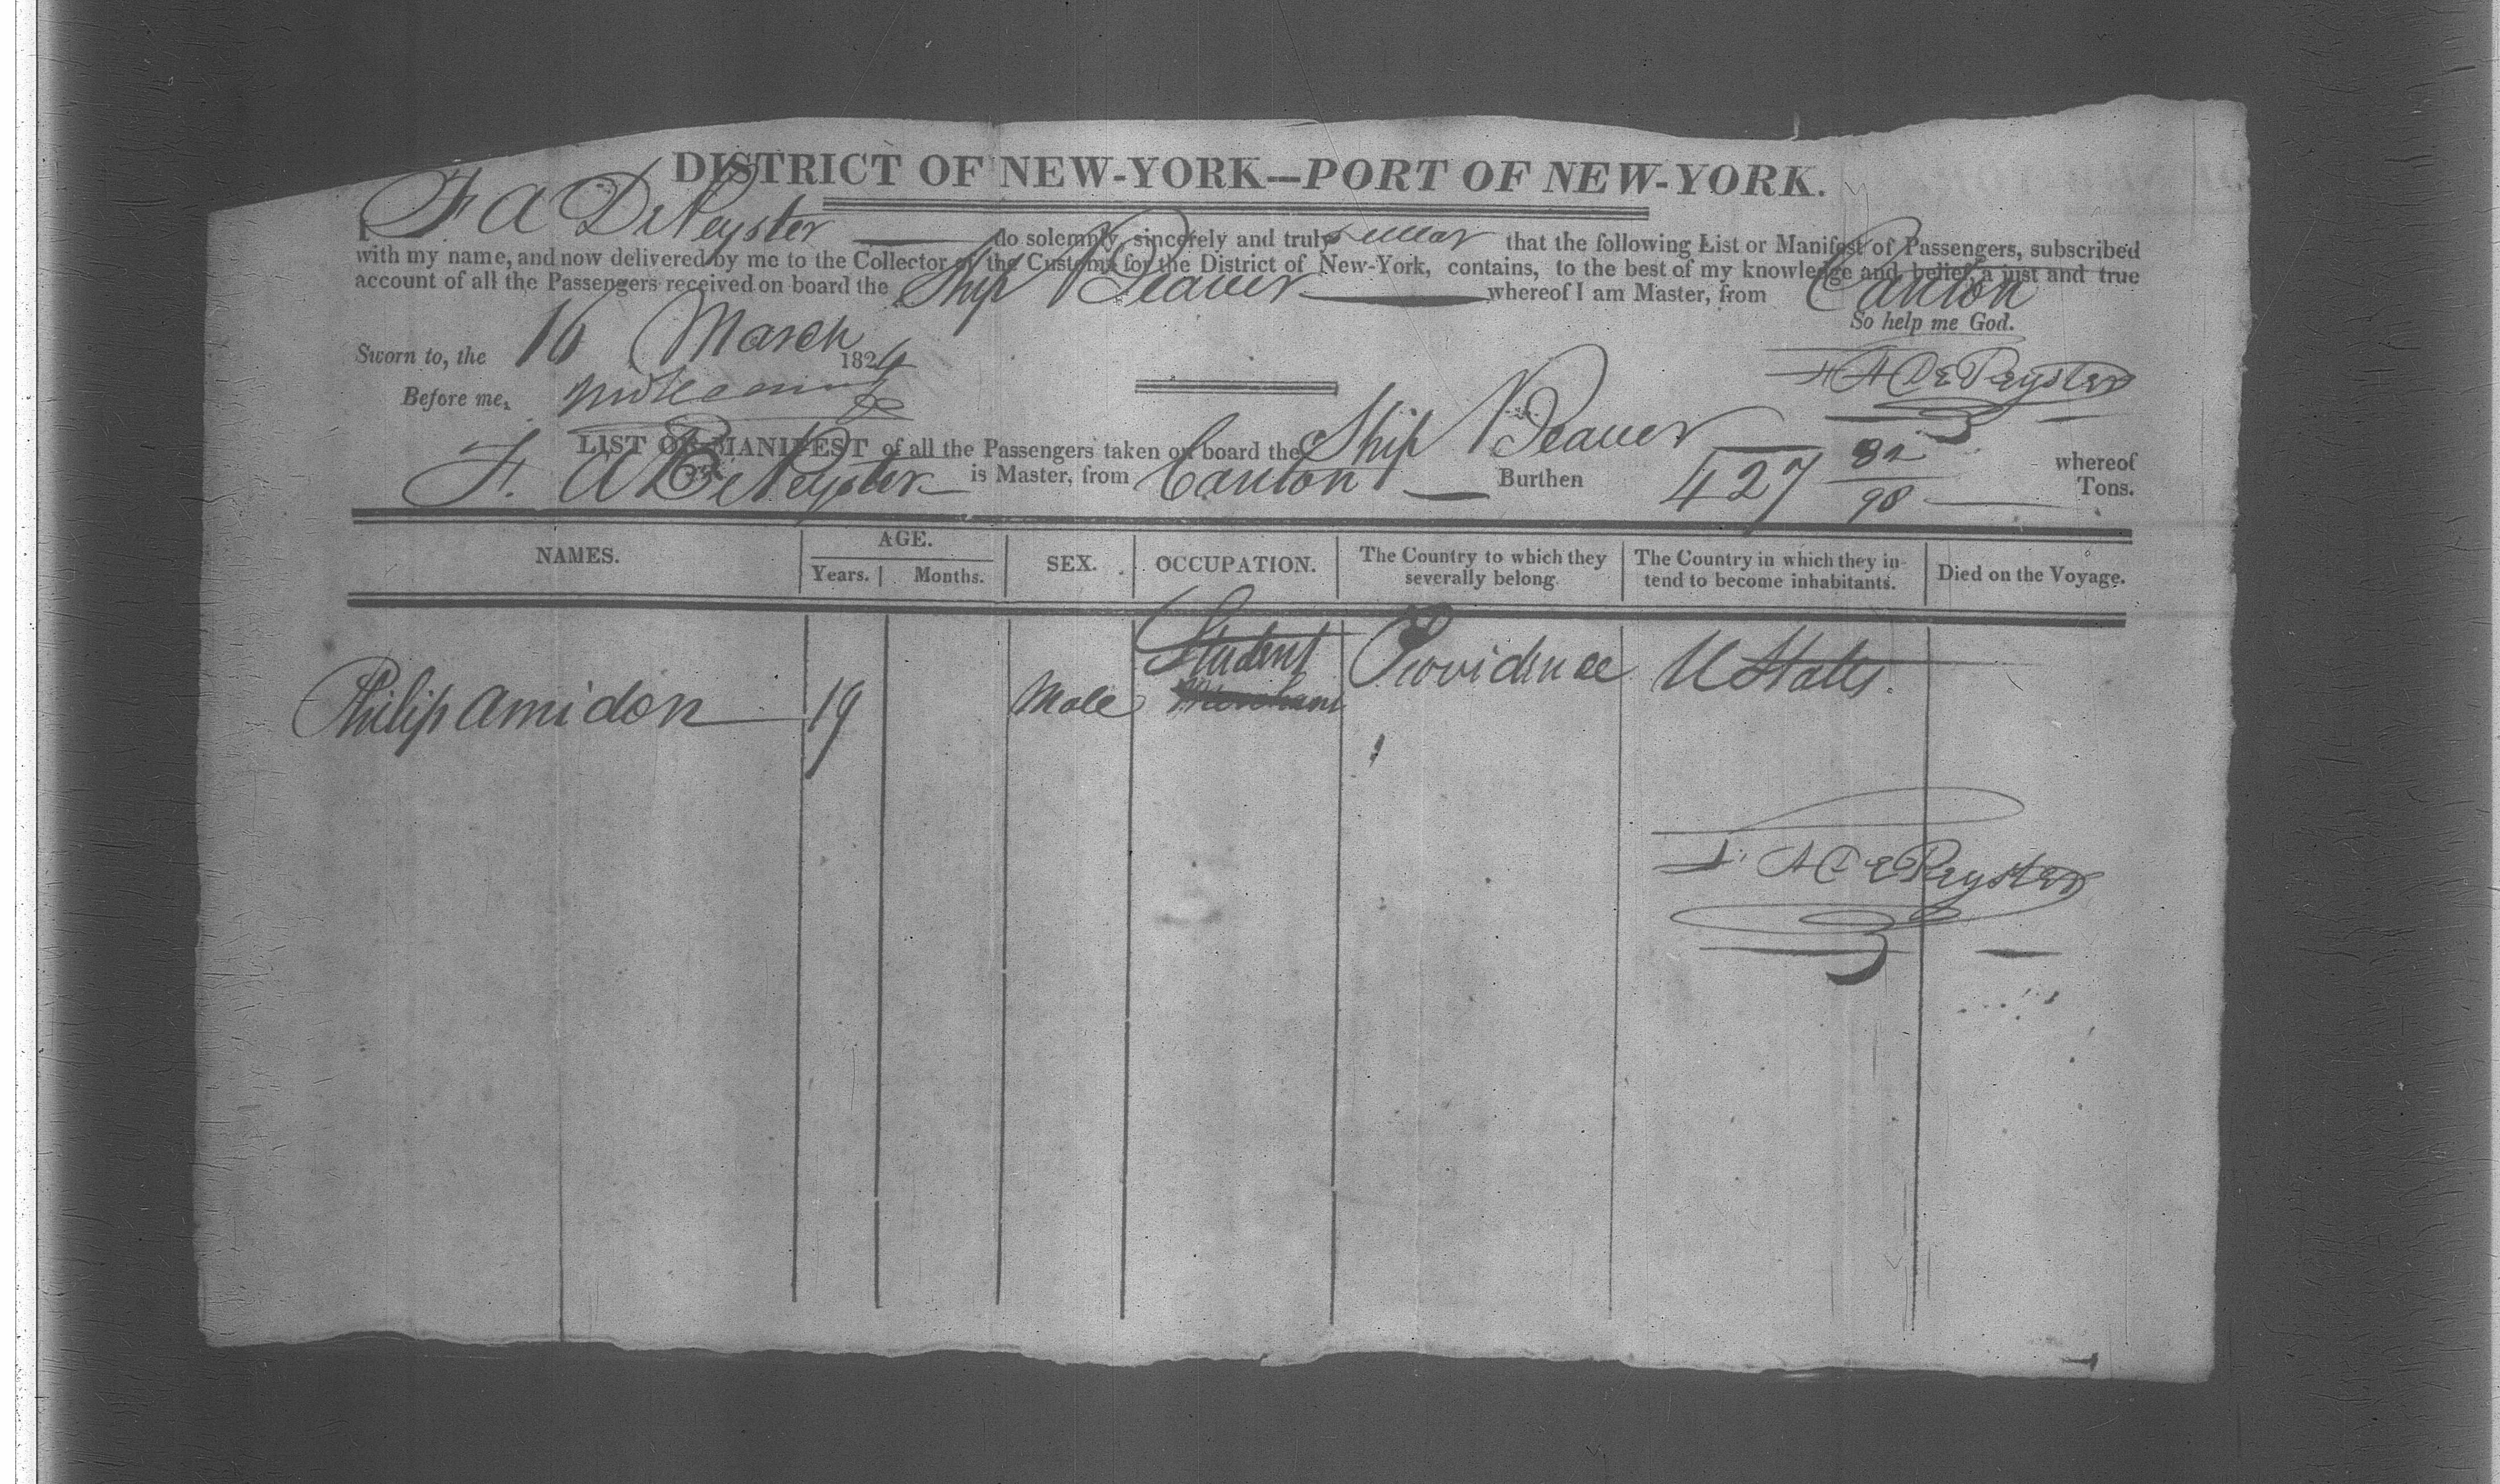 DISTRICT OF NEW-YORK—PORT OF NEW-YORK.
I F A DePeyster do solemnly, sincerely and truly swear that the following List or Manifest of Passengers, subscribed
with my name, and now delivered by me to the Collector of the Customs for the District of New-York, contains, to the best of my knowledge and belief, a just and true
account of all the Passengers received on board the Ship Beaver whereof I am Master, from Canton
So help me God.
Sworn to, the 16 March 1824
F A DePeyster
Before me,
LIST OR MANIFEST of all the Passengers taken on board the Ship Beaver whereof
F. A DePeyster is Master, from Canton Burthen 427 82/98 Tons.
NAMES. AGE. SEX. OCCUPATION. The Country to which they severally belong. The Country in which they intend to become inhabitants. Died on the Voyage.
Years. Months.
Student Providence U States
Philip Amidon 19 Male Merchant
F. A DePeyster